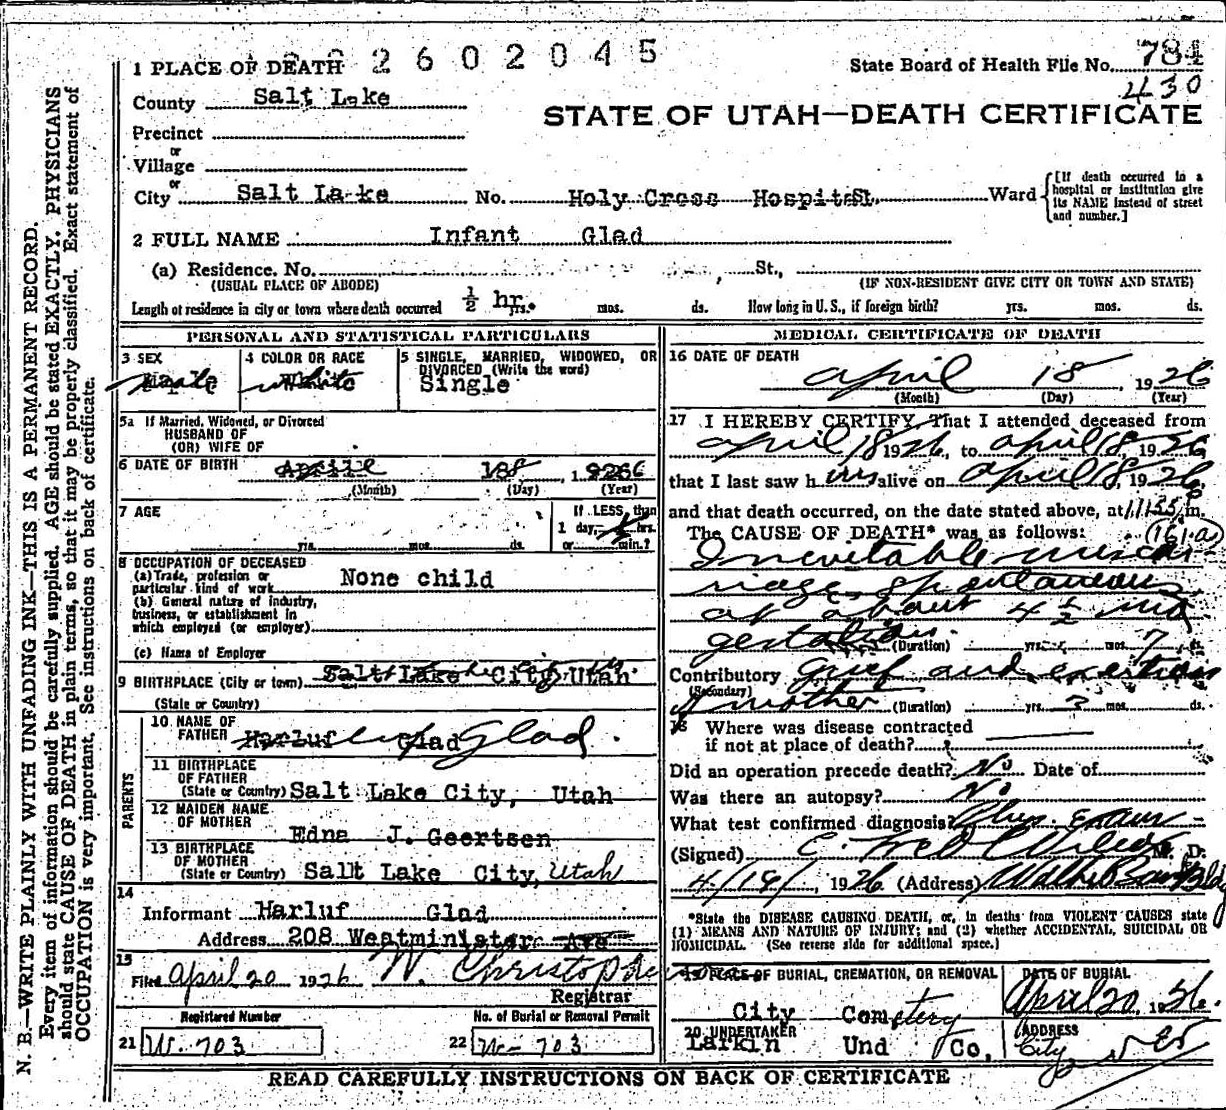 2602045
1 PLACE OF DEATH
State Board of Health File No. 784
430
County Salt Lake
STATE OF UTAH—DEATH CERTIFICATE
Precinct
or
Village
or
City Salt La ke No. Holy Cross Hospital St. Ward
[If death occurred in a hospital or institution give its NAME instead of street and number.]
2 FULL NAME Infant Glad
(a) Residence. No. St.,
(USUAL PLACE OF ABODE) (IF NON-RESIDENT GIVE CITY OR TOWN AND STATE)
Length of residence in city or town where death occurred ½ hr. yrs. mos. ds. How long in U. S., if foreign birth? yrs. mos. ds.
PERSONAL AND STATISTICAL PARTICULARS
3 SEX Male
4 COLOR OR RACE White
5 SINGLE, MARRIED, WIDOWED, OR DIVORCED (Write the word)
Single
5a If Married, Widowed, or Divorced
HUSBAND OF
(OR) WIFE OF
6 DATE OF BIRTH April 18 1926
(Month) (Day) (Year)
7 AGE yrs. mos. ds.
If LESS than
1 day, hrs.
or min.?
8 OCCUPATION OF DECEASED
(a) Trade, profession or particular kind of work None child
(b) General nature of industry, business, or establishment in which employed (or employer)
(c) Name of Employer
9 BIRTHPLACE (City or town) Salt Lake City Utah
(State or Country)
PARENTS
10 NAME OF FATHER Harluf Glad
11 BIRTHPLACE OF FATHER
(State or Country) Salt Lake City, Utah
12 MAIDEN NAME OF MOTHER Edna J. Geertsen
13 BIRTHPLACE OF MOTHER
(State or Country) Salt Lake City, Utah
14
Informant Harluf Glad
Address 208 Westminister Ave
15
Filed April 20 1926 W. Christopherson
Registrar
Registered Number No. of Burial or Removal Permit
21 W. 703 22 W- 703
MEDICAL CERTIFICATE OF DEATH
16 DATE OF DEATH
April 18, 1926
(Month) (Day) (Year)
17 I HEREBY CERTIFY, That I attended deceased from
April 18 1926, to April 18, 1926,
that I last saw him alive on April 18, 1926,
and that death occurred, on the date stated above, at 11:35 p m.
The CAUSE OF DEATH* was as follows: (161-a)
Inevitable miscar-
riage, spontaneous
at about 4 ½ mo
gestation.
(Duration) yrs. mos. 7 ds.
Contributory grief and exertion
(Secondary)
of mother (Duration) yrs. 3 mos. ds.
18 Where was disease contracted
if not at place of death?
Did an operation precede death? No Date of
Was there an autopsy? No
What test confirmed diagnosis? Phys. exam
(Signed) M. D.
4/19/, 1926 (Address) Walker Bank Bldg
*State the DISEASE CAUSING DEATH, or, in deaths from VIOLENT CAUSES state
(1) MEANS AND NATURE OF INJURY; and (2) whether ACCIDENTAL, SUICIDAL OR
HOMICIDAL. (See reverse side for additional space.)
19 PLACE OF BURIAL, CREMATION, OR REMOVAL
City Cemetery
DATE OF BURIAL
April 20, 1926.
20 UNDERTAKER
Larkin Und Co.
ADDRESS
City
READ CAREFULLY INSTRUCTIONS ON BACK OF CERTIFICATE
N. B.—WRITE PLAINLY WITH UNFADING INK—THIS IS A PERMANENT RECORD.
Every item of information should be carefully supplied. AGE should be stated EXACTLY. PHYSICIANS
should state CAUSE OF DEATH in plain terms, so that it may be properly classified. Exact statement of
OCCUPATION is very important. See instructions on back of certificate.